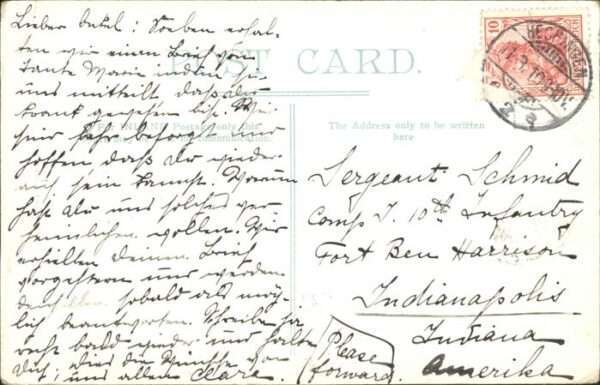 Lieber Onkel! Soeben erhal-
ten wir einen Brief von
Tante Marie indem sie
uns mitteilt dass du
krank gewesen bist. Wir
sind sehr besorgt und
hoffen dass du wieder
auf sein kannst. Warum
hast du uns solches ver
heimlichen wollen. Wir
erhielten deinen Brief
vorgestern und werden
denselben sobald als mög-
lich beantworten. Schreibe ja
recht bald wieder und halte
dich
die Wünsche von
uns allen Clara.
POST CARD.
The Address only to be written
here.
HECHINGEN
10
Sergeant Schmid
Comp I. 10th Infantry
Fort Ben Harrison
Indianapolis
Indiana
Amerika
Please
forward.